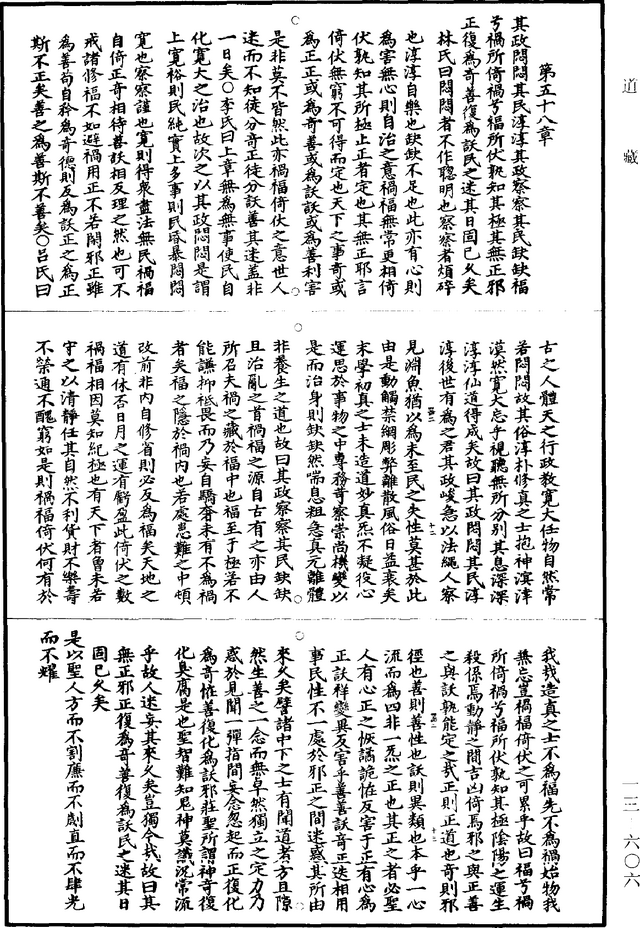 道藏
第五十八章
其政悶悶其民淳淳其政察察其民缺缺福
兮禍所倚禍兮福所伏孰知其極其無正邪
正復為奇善復為訞民之迷其日固已久矣
林氏曰悶悶者不作聰明也察察者煩碎
也淳淳自樂也缺缺不足也此亦有心則
為害無心則自治之意禍福無常更相倚
伏孰知其所極止正者定也其無正邪言
倚伏無窮不可得而定也天下之事奇或
為正正或為奇善或為訞訞或為善利害
是非莫不皆然此亦禍福倚伏之意世人
迷而不知徒分奇正徒分訞善其迷蓋非
一日矣○李氏曰上章無為無事使民自
化寬大之治也故次之以其政悶悶是謂
上寬裕則民純實上多事則民昏暴悶悶
寬也察察謹也寬則得眾盡法無民禍福
自倚正奇相待善訞相反理之然也可不
戒諸修福不如避禍用正不若閑邪正雖
為善苟自矜為奇德則反為訞正之為正
斯不正矣善之為善斯不善矣○呂氏曰
古之人體天之行政教寬大任物自然常
若悶悶故其俗淳朴修真之士抱神滇涬
漠然寬大忘乎視聽無所分別其息深深
淳淳仙道得成矣故曰其政悶悶其民淳
淳後世有為之君其政峻急以法繩人察
見淵魚猶以為未至民之失性莫甚於此
由是動觸禁網彫弊離散風俗日益衰矣
末學初真之士未造道妙真炁不凝役心
運思於事物之中專務奇察崇尚機變以
是而治身則缺缺然喘息粗急真元離體
非養生之道也故曰其政察察其民缺缺
且治亂之首禍福之源自古有之亦由人
所召夫禍之藏於福中也福至于極若不
能謙抑祗畏而乃妄自驕奢未有不為禍
者矣福之隱於禍內也若處患難之中頓
改前非內自修省則必反為福矣天地之
道有休否日月之運有虧盈此倚伏之數
禍福相因莫知紀極也有天下者曾未若
守之以清靜任其自然不利貨財不樂壽
不榮通不醜窮如是則禍福倚伏何有於
我哉造真之士不為福先不為禍始物我
無忘豈禍福倚伏之可累乎故曰福兮禍
所倚禍兮福所伏孰知其極陰陽之運生
殺係焉動靜之間吉凶倚焉邪之與正善
之與訞孰能定之哉正則正道也奇則邪
徑也善則善性也訞則異類也本乎一心
流而為四非一炁之正也其正之者必聖
人有心正之恢譎詭恠反害于正有心為
正訞祥變異反害乎善善訞奇正迭相用
事民性不一處於邪正之間迷惑其所由
來久矣譬諸中下之士有聞道者方且隙
然生善之一念而無卓然獨立之定力乃
惑於見聞一彈指間妄念忽起而正復化
為奇恠善復化為訞邪莊聖所謂神奇復
化臭腐是也聖智難知鬼神莫議況常流
乎故人迷妄其來久矣豈獨今哉故曰其
無正邪正復為奇善復為訞民之迷其日
固已久矣
是以聖人方而不割廉而不劌直而不肆光
而不耀
一三·六〇六